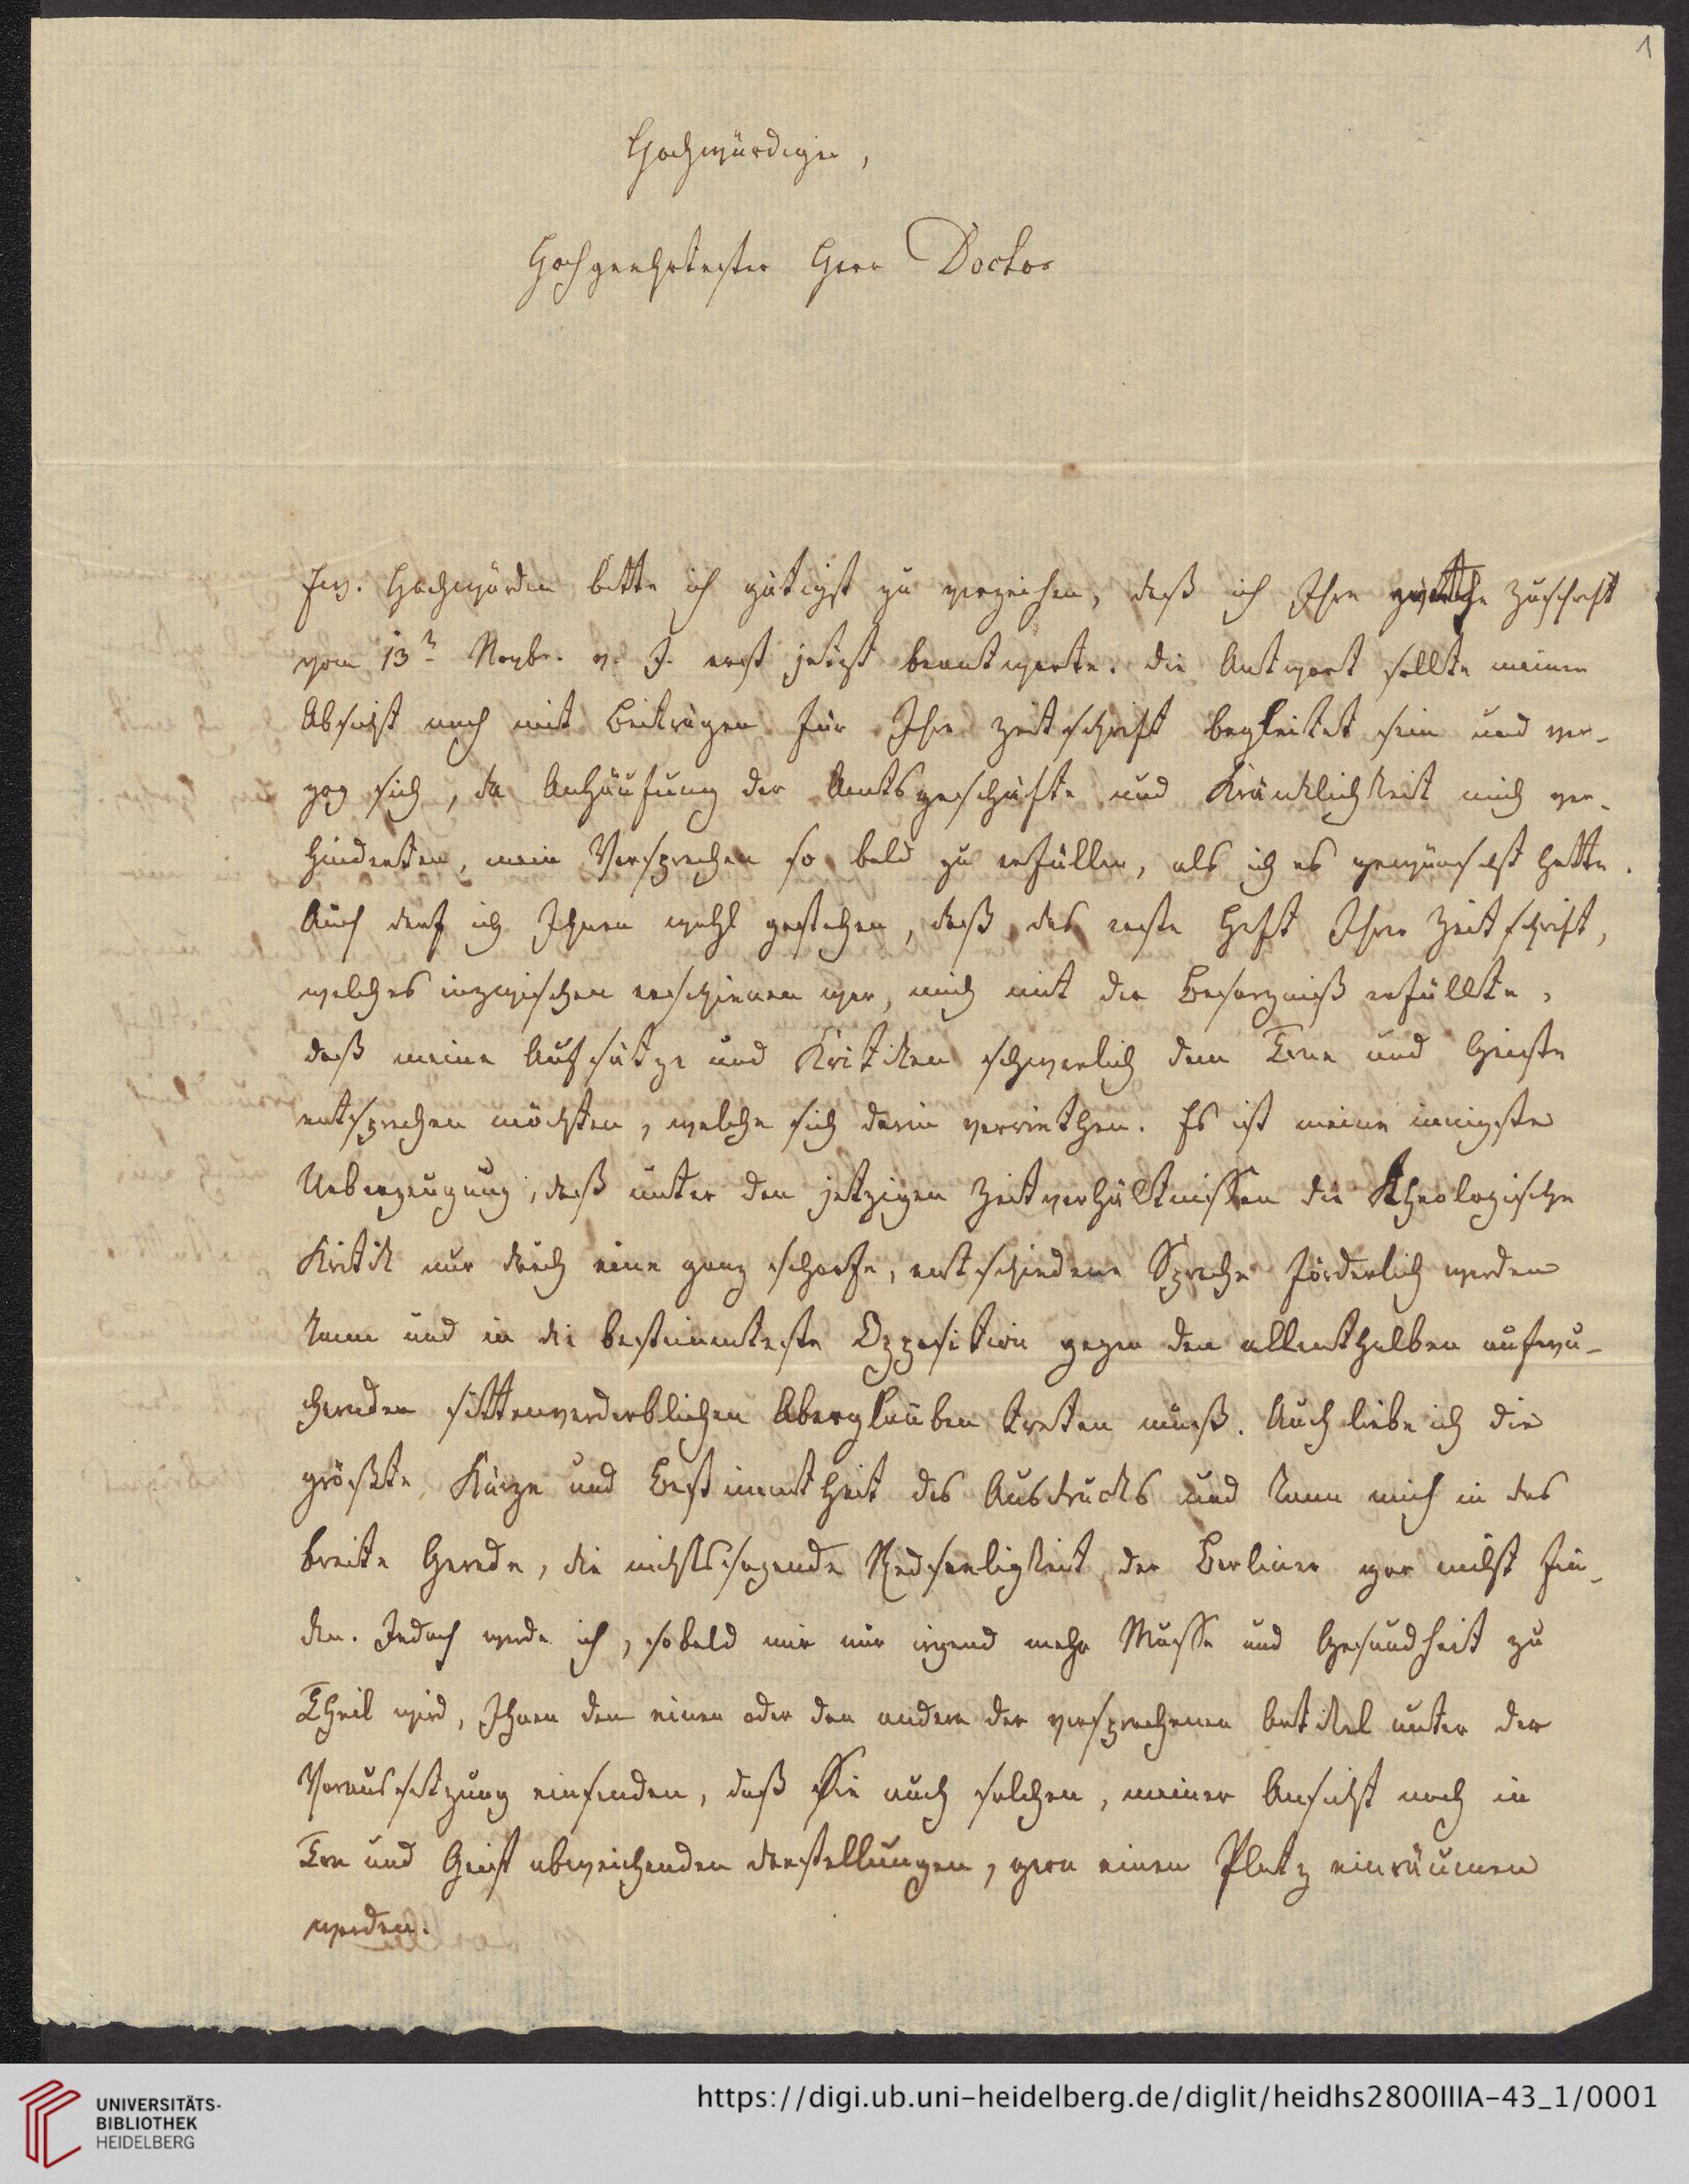 1
Hochwürdiger,
Hochgeehrtester Herr Doctor
Ew. Hochwürden bitte ich gütigst zu verzeihen, daß ich Ihre Zuschrift
vom 13n Novbr. v. J. erst jetzt beantworte. Die Antwort sollte meiner
Absicht nach mit Beiträgen für Ihre Zeitschrift begleitet sein und ver-
zog sich, da Anhäufung der Amtsgeschäfte und Kränklichkeit mich ver-
hinderten, mein Versprechen so bald zu erfüllen, als ich es gewünscht hatte.
Auch darf ich Ihnen wohl gestehen, daß das erste Heft Ihrer Zeitschrift,
welches inzwischen erschienen war, mich mit der Besorgniß erfüllte,
daß meine Aufsätze und Kritiken schwerlich dem Tone und Geiste
entsprechen möchten, welche sich darin verriethen. Es ist meine innigste
Ueberzeugung, daß unter den jetzigen Zeitverhältnissen die theologische
Kritik nur durch eine ganz scharfe, entschiedene Sprache förderlich werden
kann und in die bestimmteste Opposition gegen den allenthalben aufwu-
chernden sittenverderblichen Aberglauben treten muß. Auch liebe ich die
größte Kürze und Bestimmtheit des Ausdrucks und kann mich in das
breite Gerede, die nichtssagende Redseeligkeit der Berliner gar nicht fin-
den. Jedoch werde ich, sobald mir nur irgend mehr Musse und Gesundheit zu
Theil wird, Ihnen den einen oder den andern der versprochenen Artikel unter der
Voraussetzung einsenden, daß Sie auch solchen, meiner Ansicht nach in
Ton und Geist abweichenden Darstellungen, gern einen Platz einräumen
werden.
UNIVERSITÄTS-
BIBLIOTHEK
HEIDELBERG
https://digi.ub.uni-heidelberg.de/diglit/heidhs2800IIIA-43_1/0001